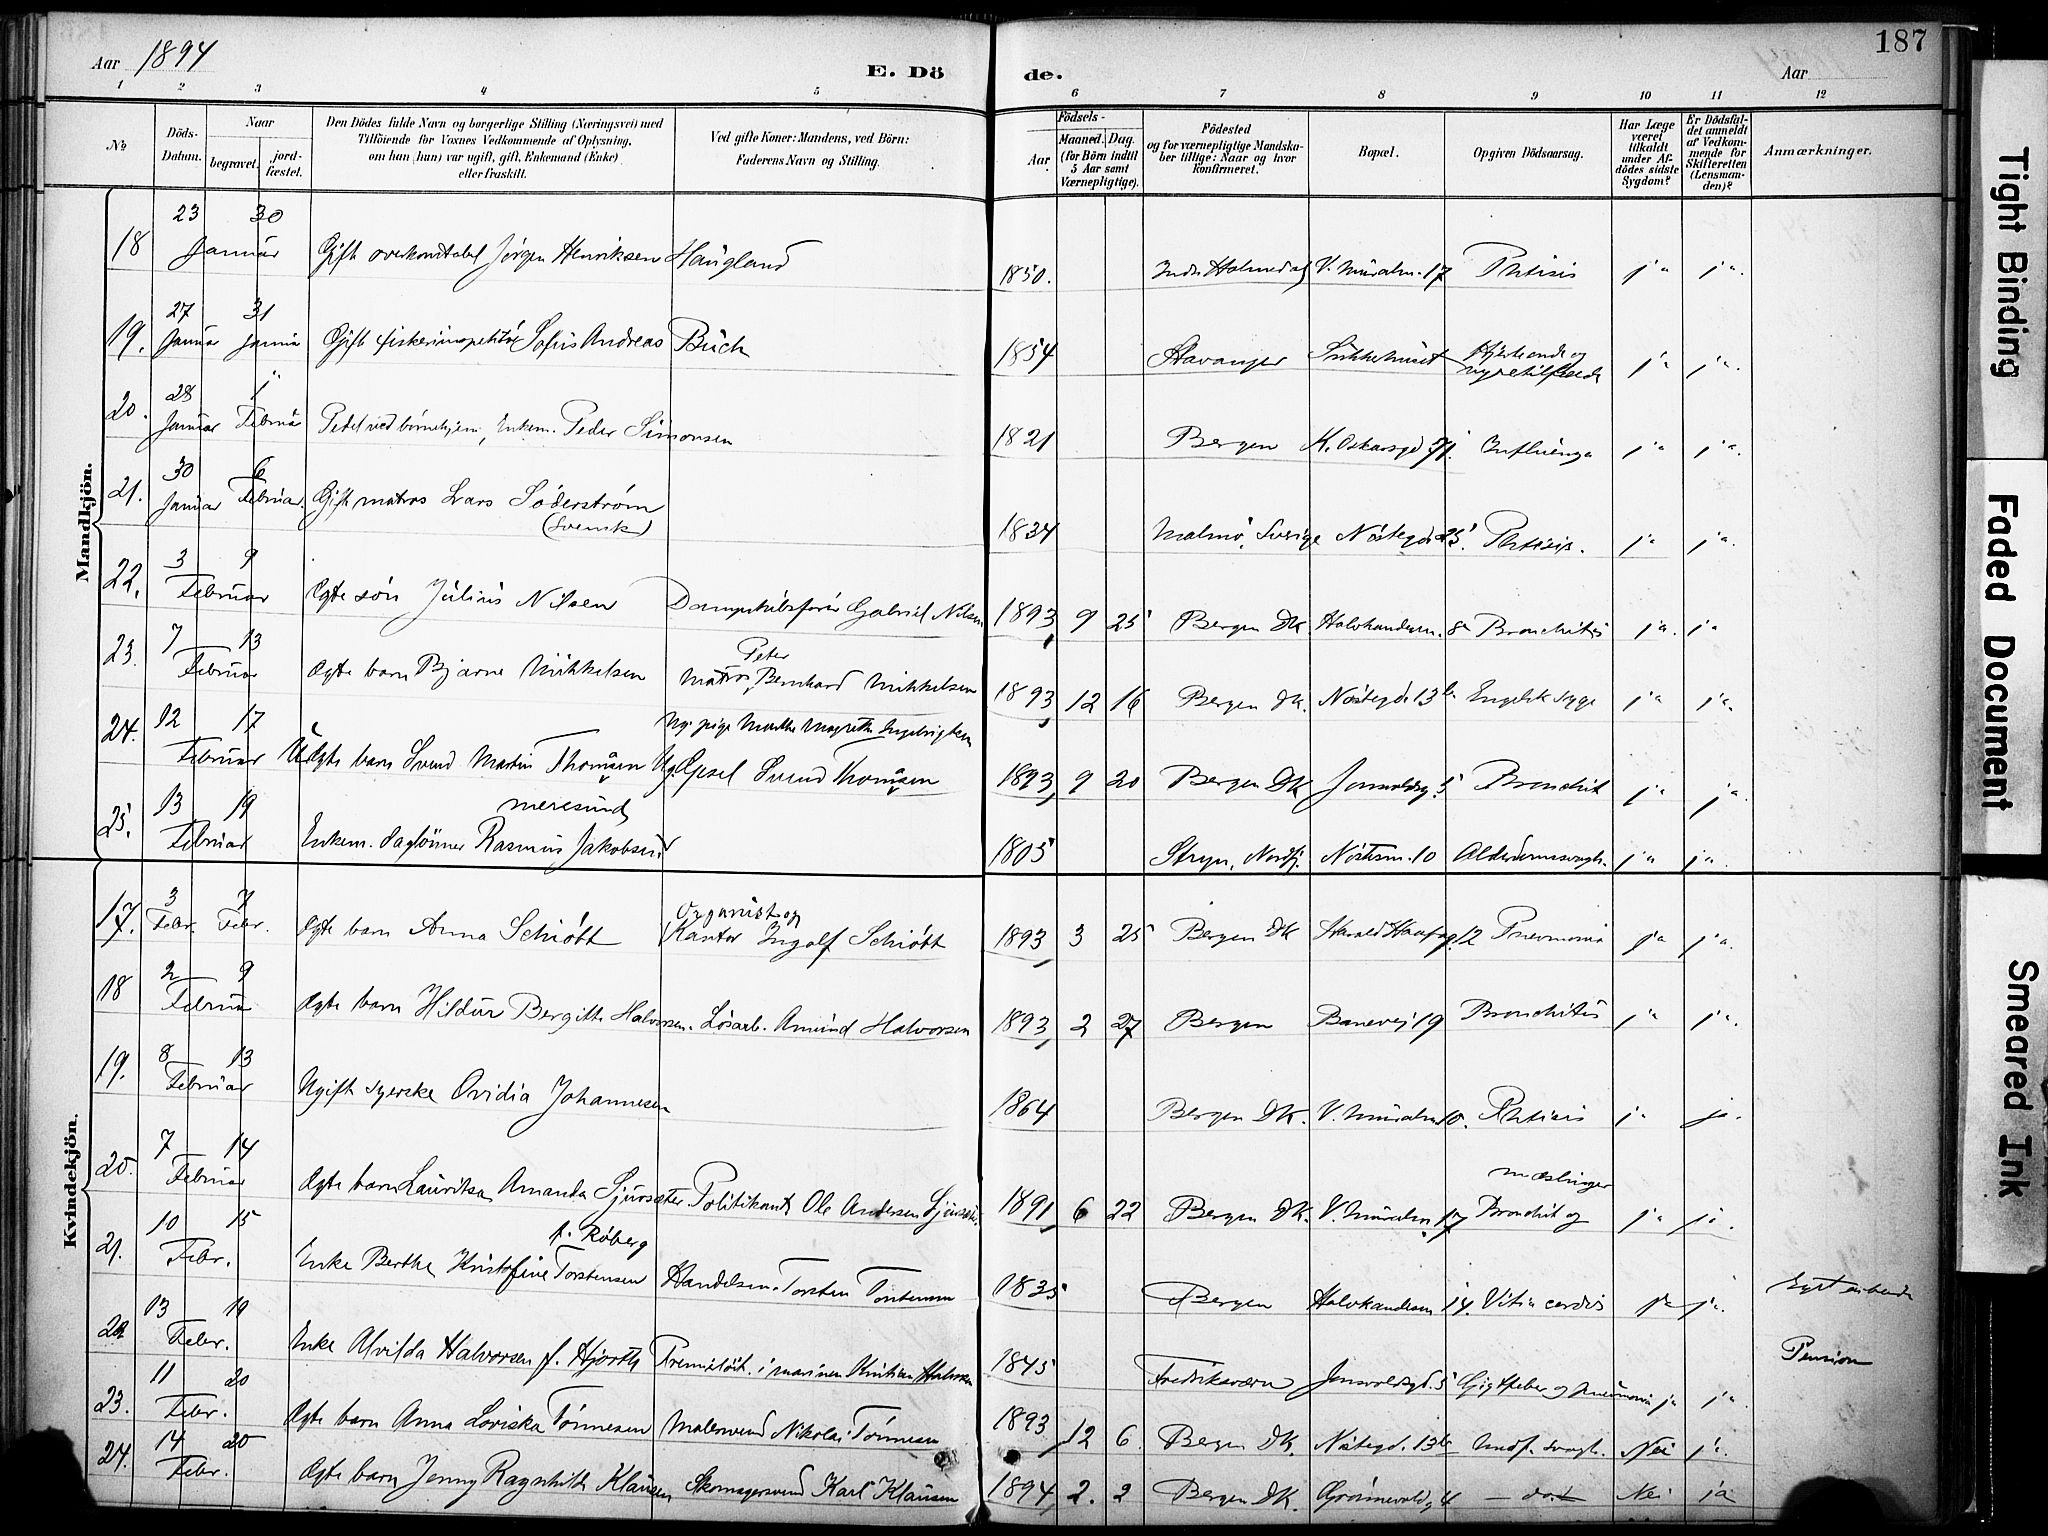 187
Aar 1894
E. Dö de.
Aar
1 2 3 4 5 6 7 8 9 10 11 12
№
Döds-Datum.
Naar
begravet.
jord-fæstet.
Den Dödes fulde Navn og borgerlige Stilling (Næringsvei) med
Tilföiende for Voxnes Vedkommende af Oplysning,
om han (hun) var ugift, gift, Enkemand (Enke)
eller fraskilt.
Ved gifte Koner: Mandens, ved Börn:
Faderens Navn og Stilling.
Födsels-
Aar.
Maaned. Dag
(for Börn indtil
5 Aar samt
Værnepligtige).
Födested
og for værnepligtige Mandska-
ber tillige: Naar og hvor
konfirmeret.
Bopæl.
Opgiven Dödsaarsag.
Har Læge
været
tilkaldt
under Af-
dödes sidste
Sygdom?
Er Dödsfal-
det anmeldt
af Vedkom-
mende for
Skifteretten
(Lensman-
den)?
Anmærkninger.
Mandkjön.
18 23 30 Januar Gift overkonstabel Jörgen Henriksen Haugland 1850. Holmedal V. Muralm. 17 Phtisis ja ja.
19. 27 Januar 31 Januar Gift fiskeriinspektör Sofus Andreas Buch 1854 Stavanger Sukkehuset ja ja.
20. 28 Januar 1 Februar Pedel ved börnehjem, Enkem. Peder Simonsen 1821 Bergen K. Oskarsgd 71. Influenza ja ja.
21. 30 Januar 6 Februar. Gift matros Lars Söderström (Svensk) 1834 Malmö, Sverige Nöstegd 25. Phtisis. ja ja.
22. 3 9 Februar Ægte sön Julius Nilsen Dampskibsförer Gabriel Nilsen 1893, 9 25 Bergen DK. 8a Bronchitis ja. ja
23. 7 13 Februar Ægte barn Bjarne Mikkelsen Matros Peter Bernhard Mikkelsen 1893, 12 16 Bergen DK. Nöstegd. 13b Engelsk syge ja ja.
24. 12 17 Februar Uægte barn Svend Martin Thomsen Ug. pige Marthe Magrethe Ingebrigtsen Ug. Svend Thomsen 1893, 9 20 Bergen DK Jonsvoldsg. 5 Bronchit ja ja.
25. 13 19 Februar Enkem. daglönner Rasmus Jakobsen Meresund 1805 Stryn, Nordfj. Nöstesm. 10 Alderdomssvagh. ja ja.
Kvindekjön.
17. 3 Febr. 7 Febr. Ægte barn Anna Schiött Organist og Kantor Ingolf Schiött 1893, 3 25 Bergen DK Harald Haarfag. 12 Pneumonia ja ja.
18 2 9 Februar Ægte barn Hildur Bergitte Halvorsen. Lösarb. Amund Halvorsen 1893, 2 27 Bergen Banevej 19 Bronchitis ja ja.
19. 8 13 Februar Ugift syerske Ovidia Johannesen 1864 Bergen DK. V. Muralm 10. Phtisis ja ja.
20. 7 14 Februar Ægte barn Lauritza Amanda Sjursæter Politikonst. Ole Andersen Sjursæter 1891, 6 22 Bergen DK. V. Muralm. 17 Bronchit og mæslinger ja ja.
21. 10 15 Febr. Enke Berthe Kristofine Torstensen f. Röberg Handelsm. Torsten Torstensen 1835 Bergen 14. Vitia cordis ja ja.
22 13 19 Febr. Enke Alvilda Halvorsen f. Hjorth Premierlöit. i marinen Kristian Halvorsen 1845 Fredriksværn Jonsvoldsgd. 5 Gigtfeber og pneumonia ja ja. Pension
23. 11 20 Febr. Ægte barn Anna Loviska Tönnesen Malersvend Nikolai Tönnesen 1893, 12 6. Bergen DK. Nöstegd. 13b Medf. svagh. Nei ja.
24. 14 20 Febr. Ægte barn Jenny Ragnhild Klausen Skomagersvend Karl Klausen 1894, 2. 2 Bergen DK. 4 — do. — Nei ja
Tight Binding
Faded Document
Smeared Ink